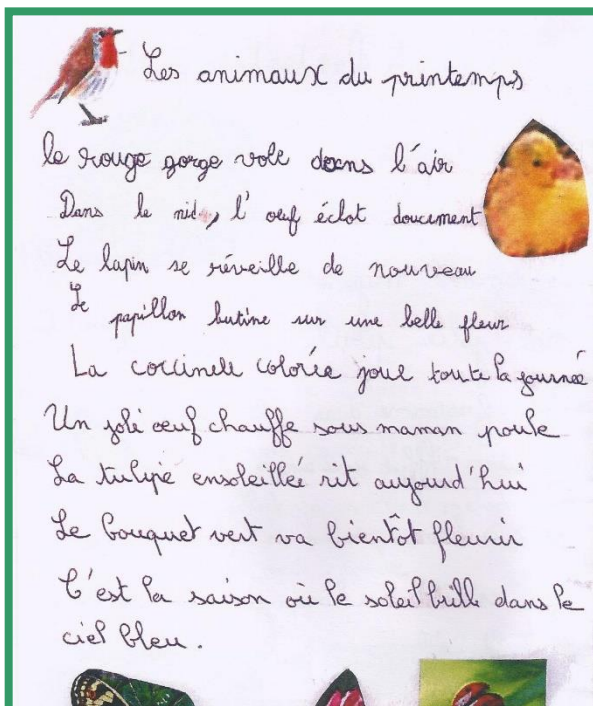 Les animaux du printemps
le rouge gorge vole dans l'air
Dans le nid, l'oeuf éclot doucement
Le lapin se réveille de nouveau
Le papillon butine sur une belle fleur
La coccinelle colorée joue toute la journée
Un joli oeuf chauffe sous maman poule
La tulipe ensoleillée rit aujourd'hui
Le bouquet vert va bientôt fleurir
C'est la saison où le soleil brille dans le
ciel bleu.